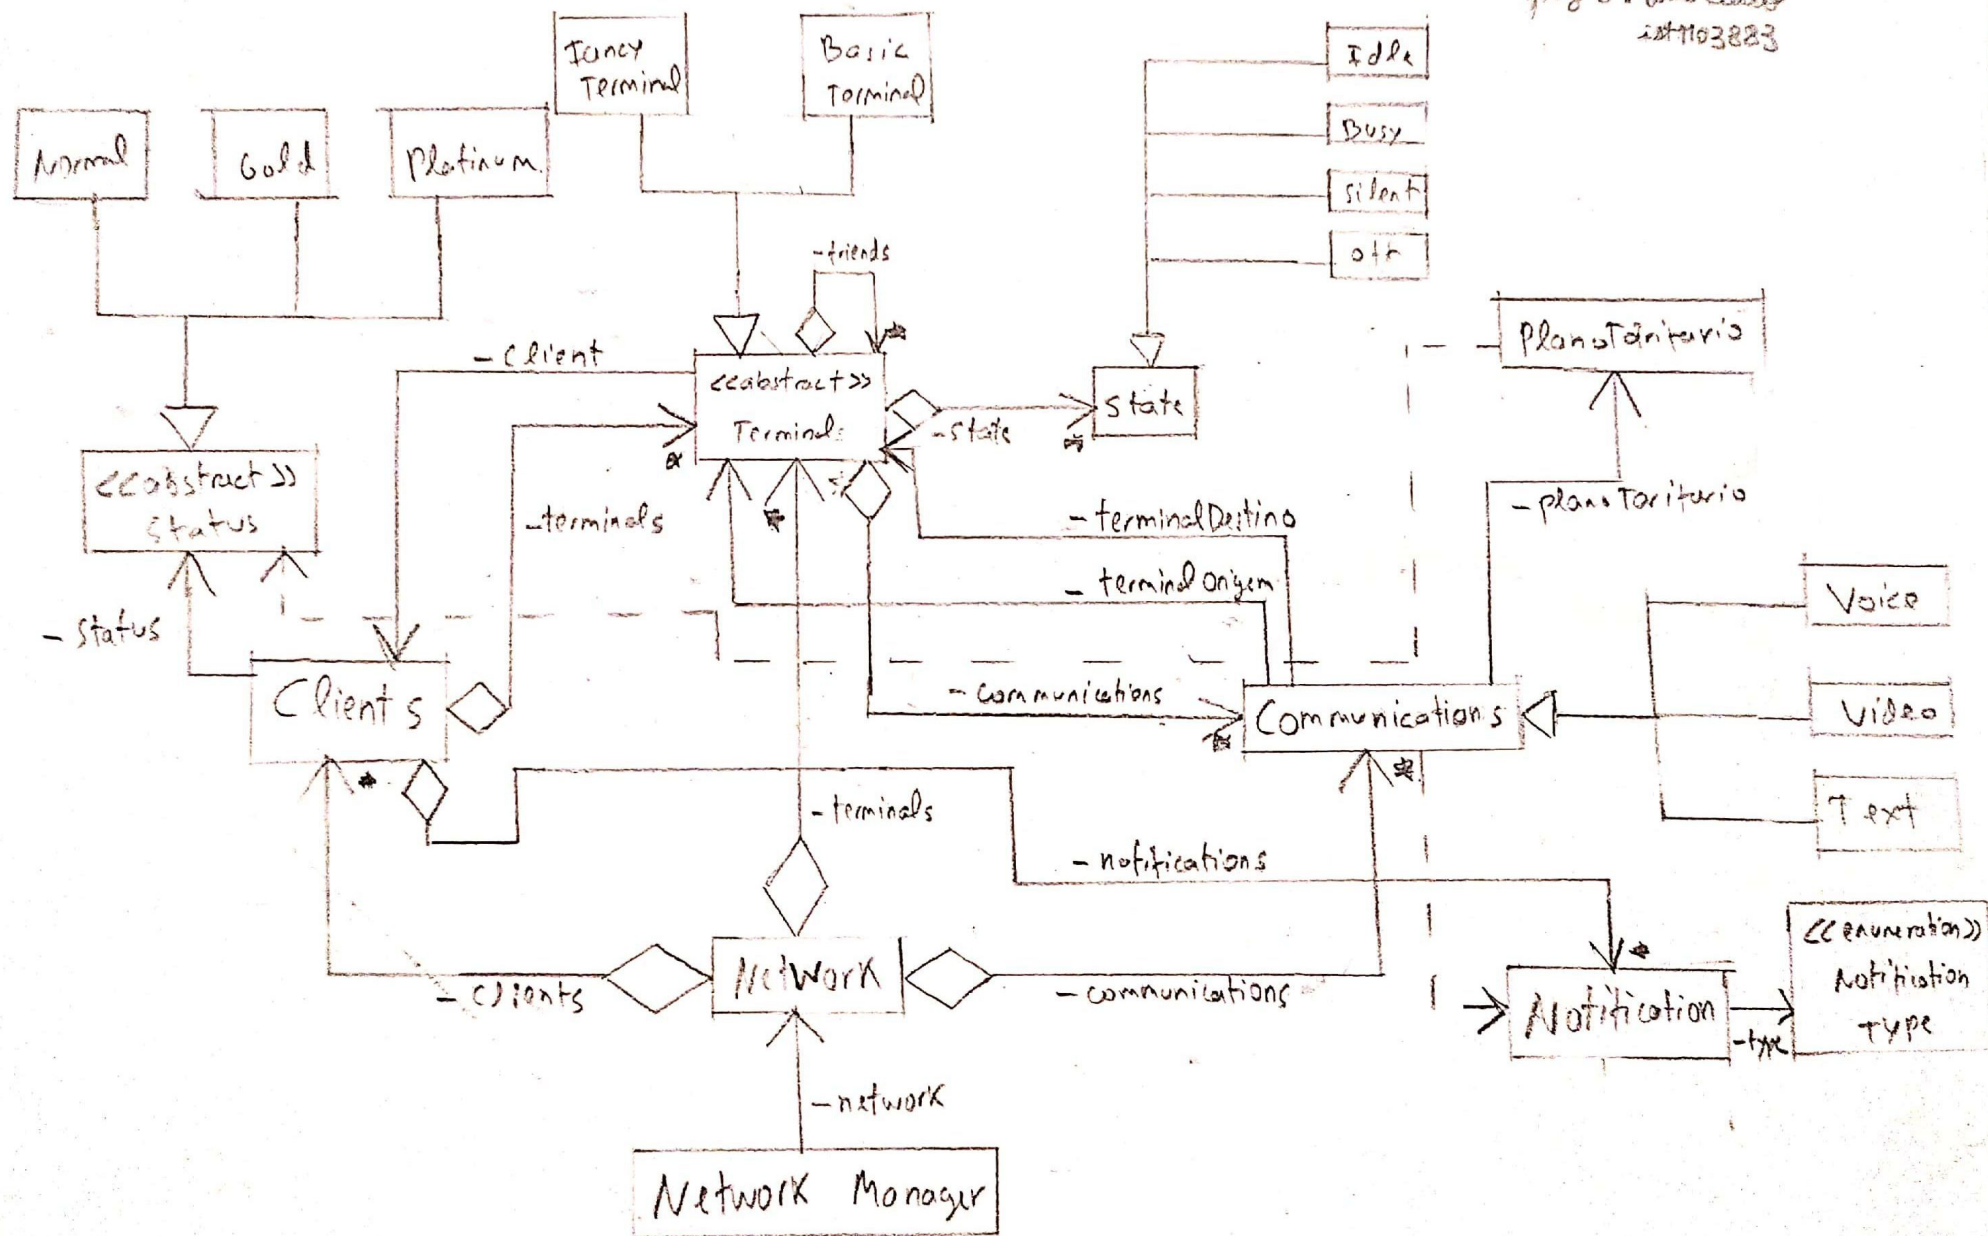 ist1103883
Fancy
Terminal
Basic
Terminal
Idle
Busy
Silent
Off
Normal
Gold
Platinum
-friends
*
PlanoTarifario
-Client
<<abstract>>
Terminals
*
State
-State
*
<<abstract>>
Status
-terminals
*
-terminalDestino
-planoTarifario
-terminalOrigem
Voice
-Status
Clients
-Communications
*
Communications
Video
*
*
Text
-terminals
-notifications
<<enumeration>>
Notification
Type
*
Network
-Clients
-communications
Notification
-type
-network
Network Manager